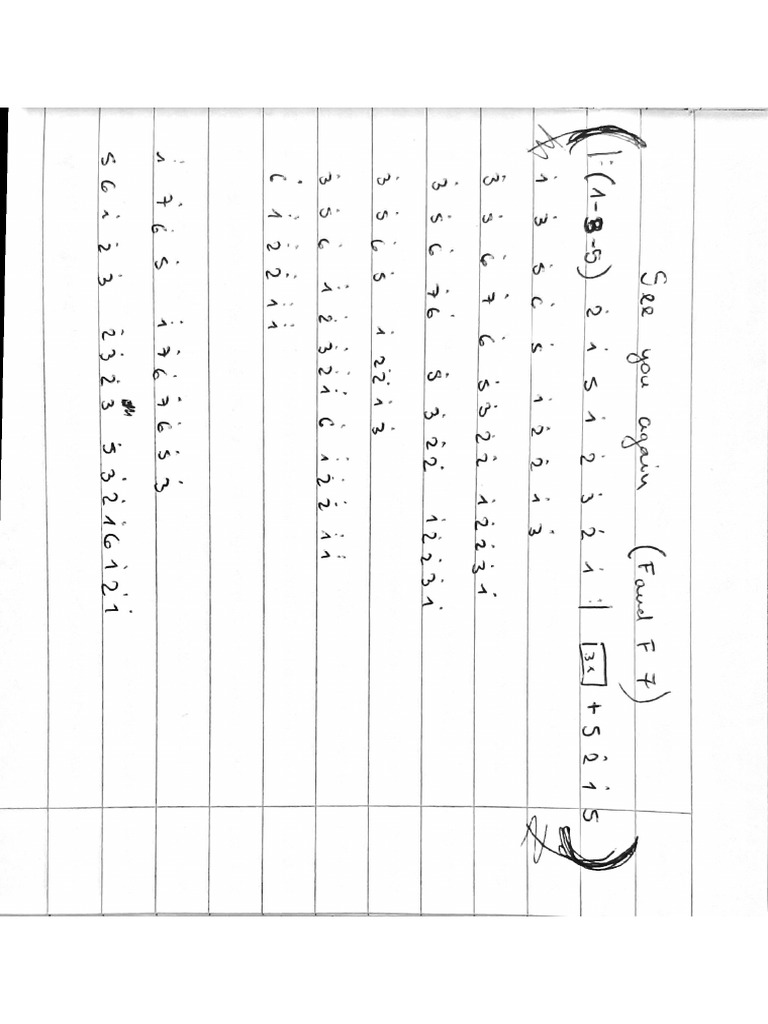 See you again (F and F 7)
|: (1-3-5) 2̇ 1̇ 5 1̇ 2̇ 3̇ 2̇ 1̇ :| 3x + 5 2̇ 1̇ 5
1̇ 3̇ 5 6 5̇ 1̇ 2̇ 2̇ 1̇ 3̇
3̇ 5̇ 6̇ 7̇ 6̇ 5̇ 3̇ 2̇ 2̇ 1̇ 2̇ 2̇ 3̇ 1̇
3̇ 5̇ 6̇ 7̇ 6̇ 5̇ 3̇ 2̇ 2̇ 1̇ 2̇ 2̇ 3̇ 1̇
3̇ 5̇ 6̇ 5̇ 1̇ 2̇ 2̇ 1̇ 3̇
3̇ 5̇ 6̇ 1̇ 2̇ 3̇ 2̇ 1̇ 6 1̇ 2̇ 2̇ 1̇ 1̇
6̇ 1̇ 2̇ 2̇ 1̇ 1̇
1̇ 7̇ 6̇ 5̇ 1̇ 7̇ 6̇ 7̇ 6̇ 5̇ 3̇
5 6 1̇ 2̇ 3̇ 2̇ 3̇ 2̇ 3̇ 5̇ 3̇ 2̇ 1̇ 6 1̇ 2̇ 1̇